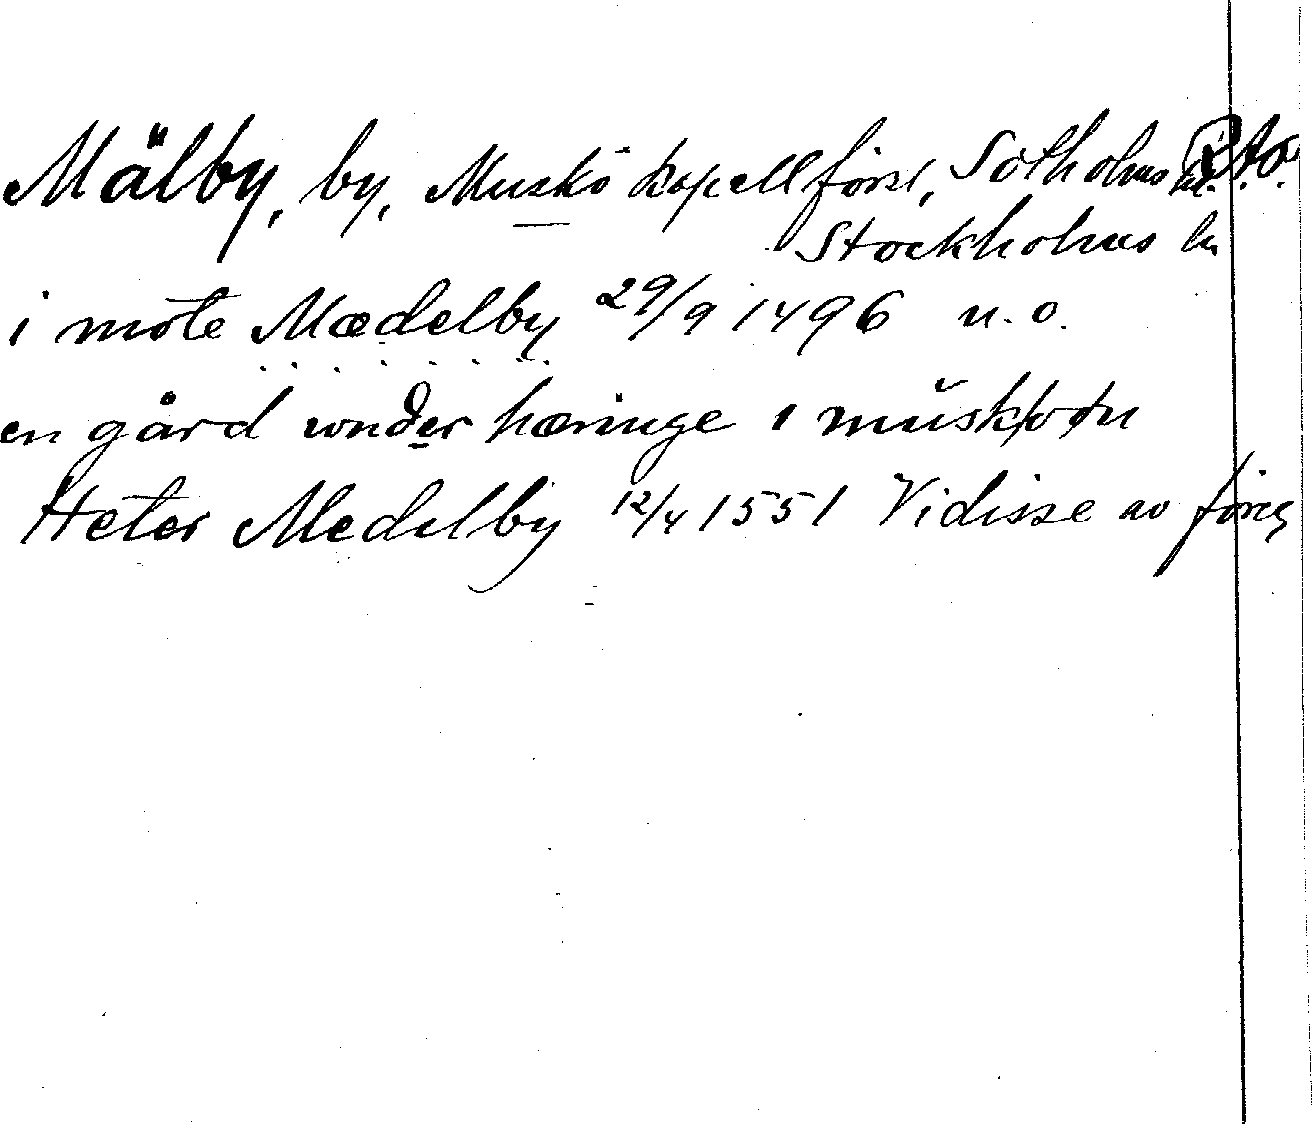 Mälby, by, Muskö kapellförs., Sotholms hd. R.A.O.
Stockholms ln
i mote Mædelby 29/9 1496 u.o.
en gård wnder hæringe i mūsk
Heter Medelby 12/4 1551 Vidisse av föreg